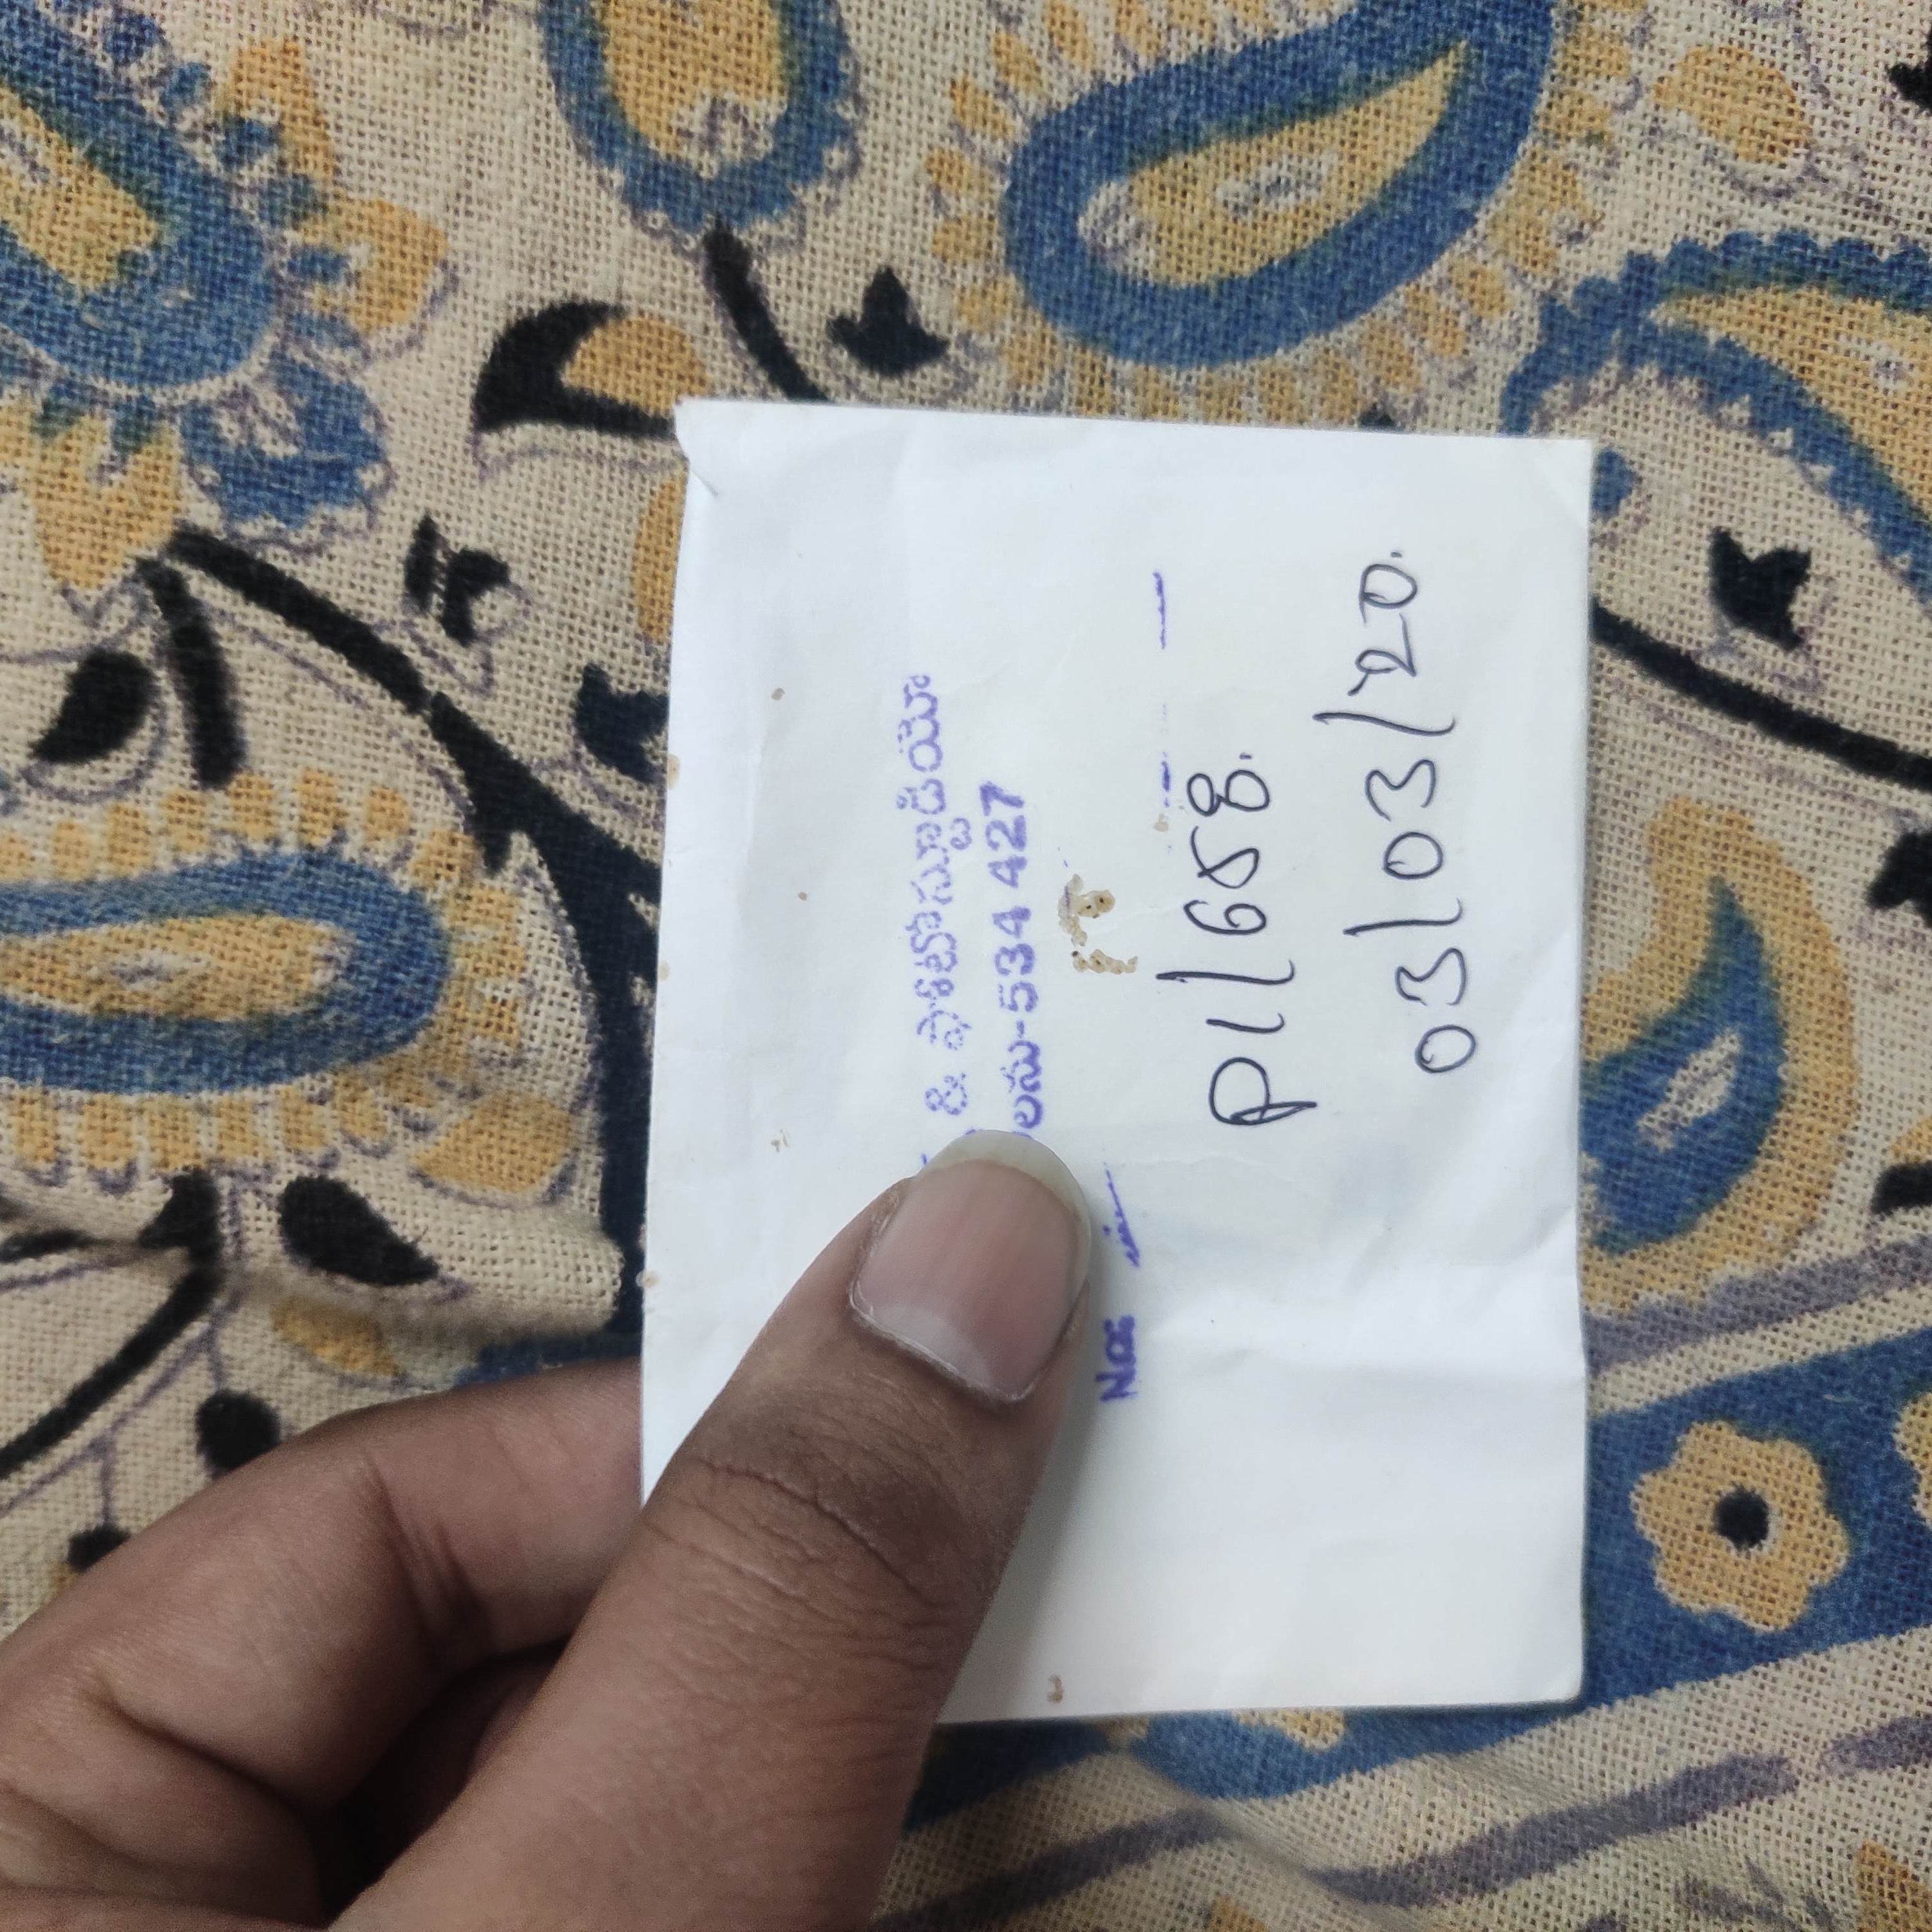 & ఫోటోస్టూడియో
లను-534 427
No:
P1/658.
03/03/'20.